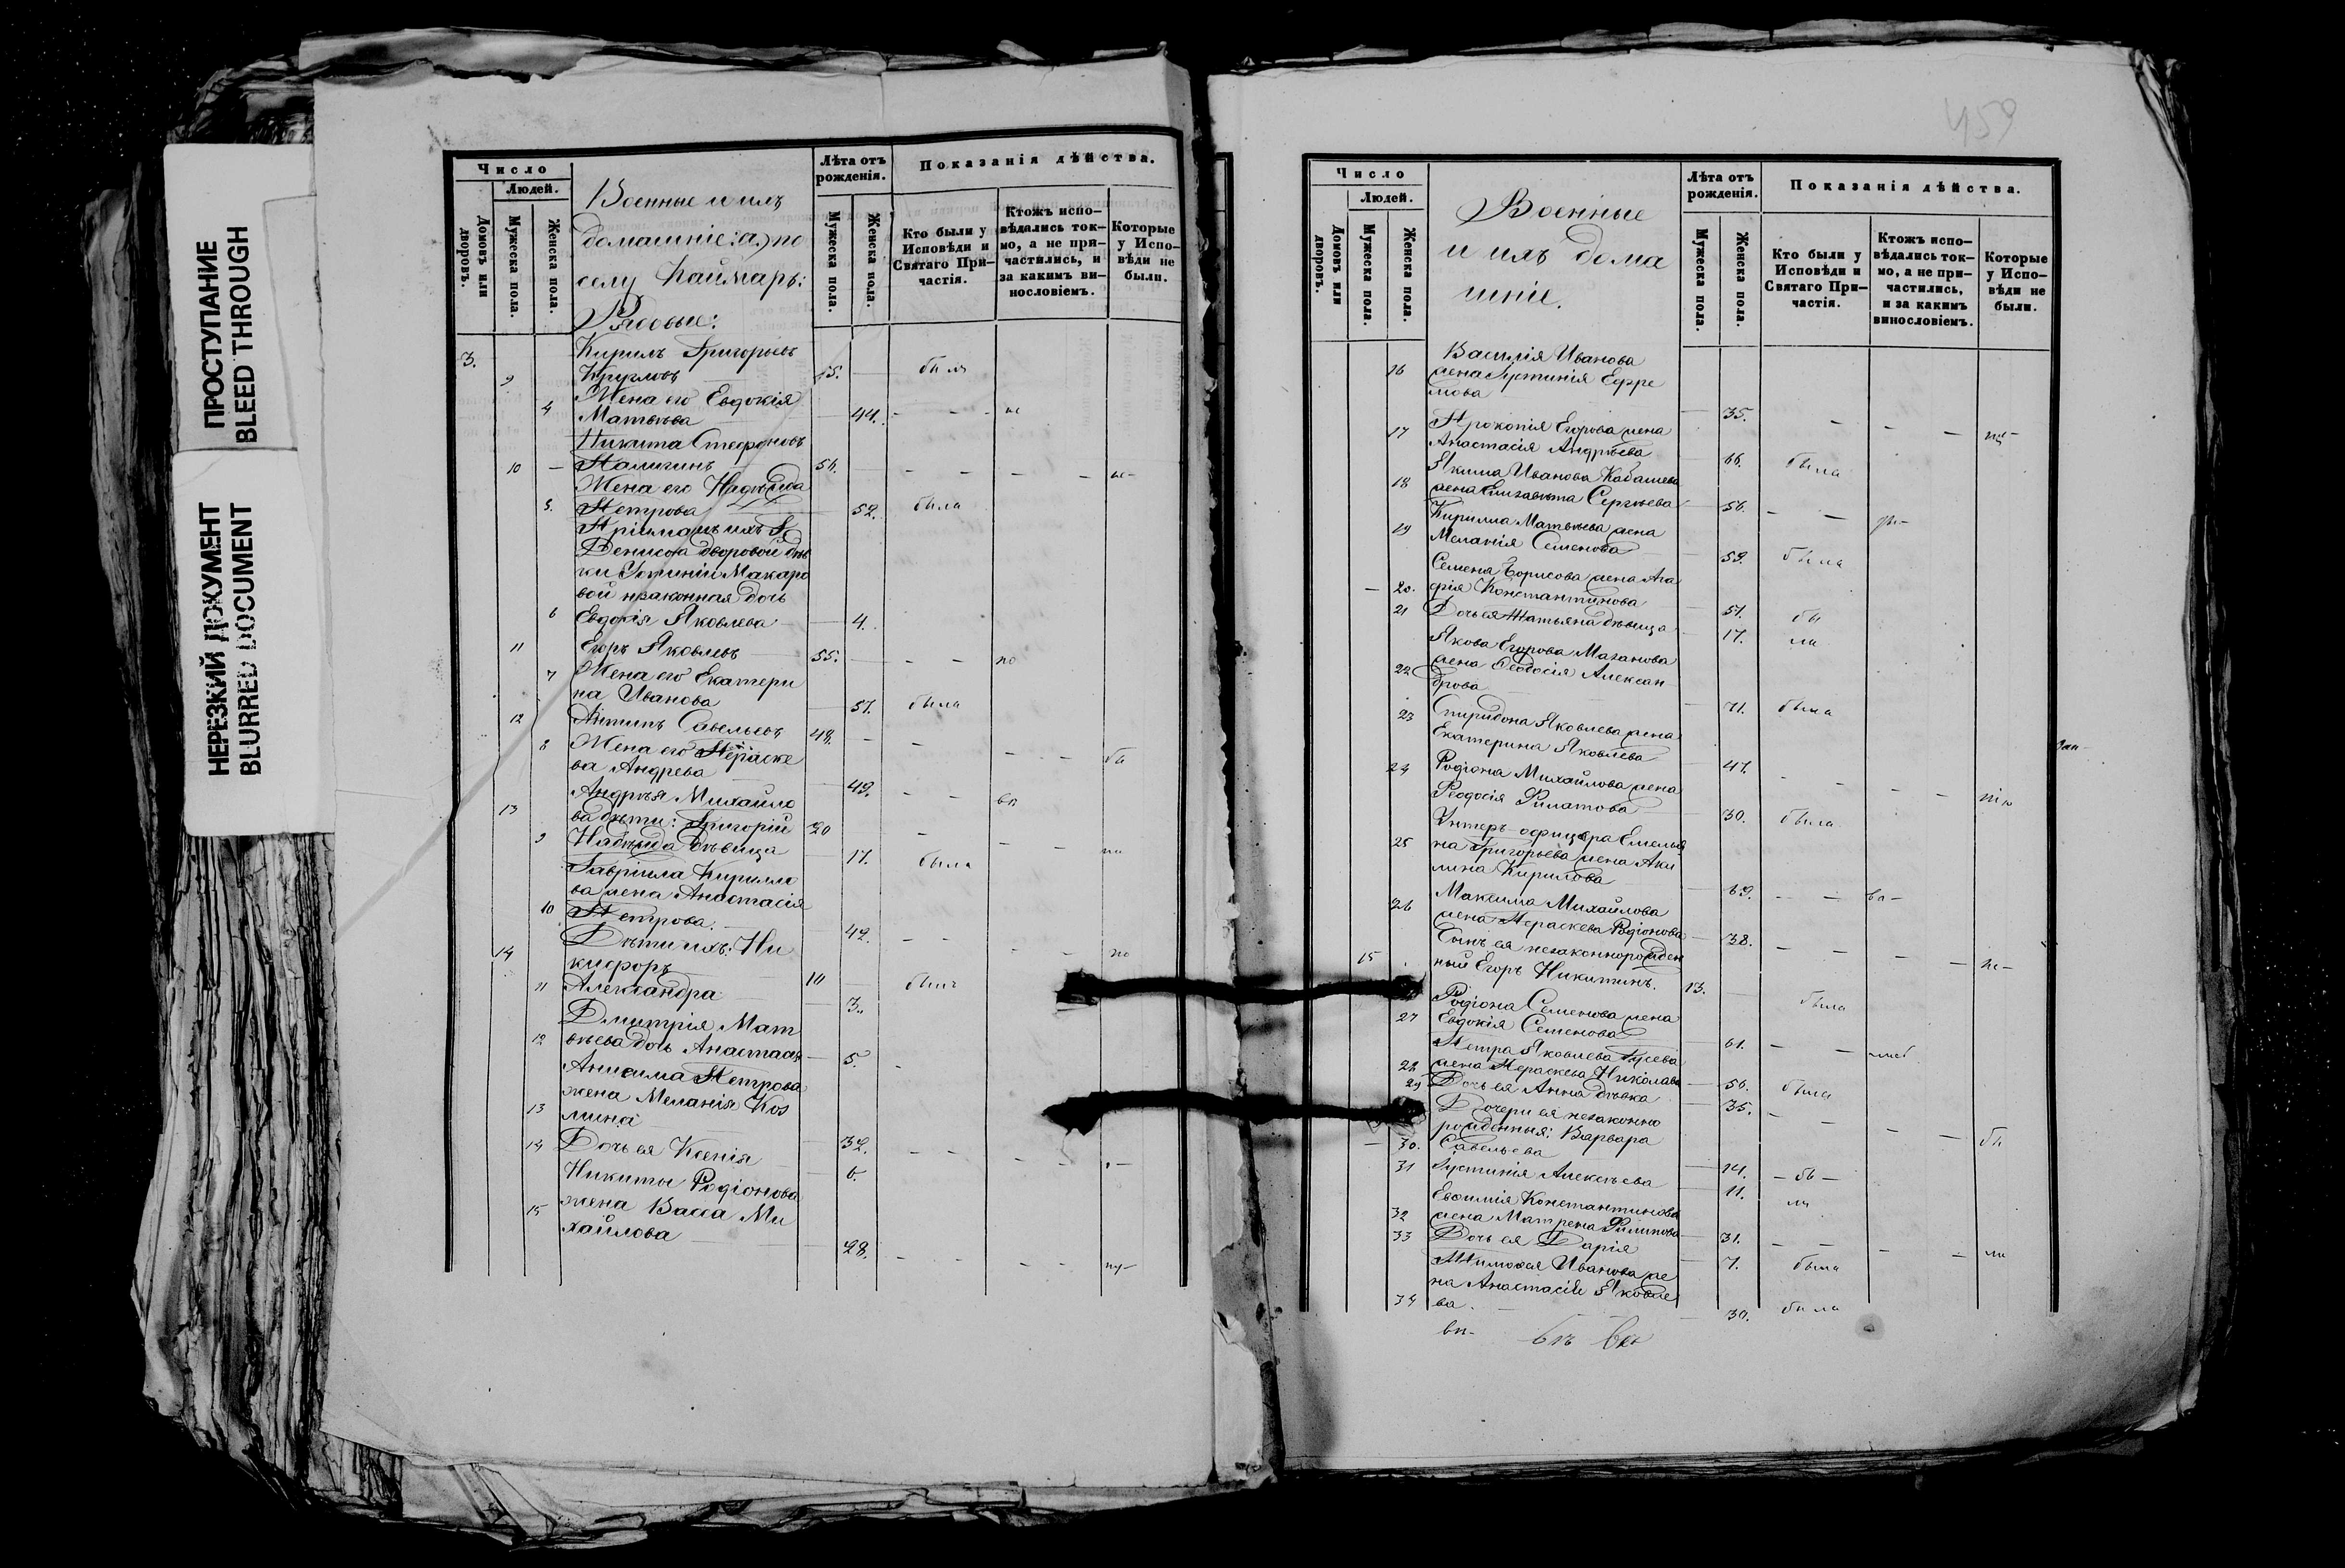 ПРОСТУПАНИЕ
BLEED THROUGH
НЕРЕЗКИЙ ДОКУМЕНТ
BLURRED DOCUMENT
Число
Людей.
Домовъ или дворовъ.
Мужеска пола.
Женска пола.
Военные и ихъ
домашніе: а) по
селу Каймаръ:
Рядовые:
Лѣта отъ рожденія.
Мужеска пола.
Женска пола.
Показанія дѣйства.
Кто были у Исповѣди и Святаго Причастія.
Ктожъ исповѣдались токмо, а не причастились, и за какимъ винословіемъ.
Которые у Исповѣди не были.
3. Кирилъ Григорьевъ
9 Кругловъ 45. былъ
Жена его Евдокія
4 Матвѣева 44.
Никита Стефановъ
10 54.
Жена его Надежда
5. Петрова 52. была
Пріемышъ ихъ
Денисова дворовой дѣв
ки Устиніи Макаро
вой незаконная дочь
6 Евдокія Яковлева 4.
11 Егоръ Яковлевъ 55.
7 Жена его Екатери
на Иванова 57. была
12 Антипъ Савельевъ 48.
8 Жена его Параске
ва Андреева 49.
Андрѣя Михайло
13 ва дѣти: Григорій 20
9 Надежда дѣвица 17. была
Гавріила Кирилло
ва жена Анастасія
10 Петрова. 42.
Дѣти ихъ: Ни
14 кифоръ 10 былъ
11 Александра 3.
Дмитрія Мат
12 вѣева дочь Анастасія 5.
Анисима Петрова
жена Меланія Коз
13 мина 32.
14 Дочь ея Ксенія 6.
Никиты Родіонова
15 жена Васса Ми
хайлова 28.
459
Число
Людей.
Домовъ или дворовъ.
Мужеска пола.
Женска пола.
Военные
и ихъ дома
шніе.
Лѣта отъ рожденія.
Мужеска пола.
Женска пола.
Показанія дѣйства.
Кто были у Исповѣди и Святаго Причастія.
Ктожъ исповѣдались токмо, а не причастились, и за какимъ винословіемъ.
Которые у Исповѣди не были.
Василія Иванова
16 жена Іустинія Ефре
мова 35.
17 Прокопія Егорова жена
Анастасія Андрѣева 66. была
Якима Иванова Кабашева
18 жена Елизавета Сергѣева 56.
Кирилла Матвѣева жена
19 Меланія Семенова 59. была
Семена Борисова жена Ага
20. фія Константинова 57. бы
21 Дочь ея Татьяна дѣвица 17. ла
Якова Егорова Мазанова
22 жена Ѳеодосія Алексан
дрова 71. была
23 Спиридона Яковлева жена
Екатерина Яковлева 47.
24 Родіона Михайлова жена
Ѳеодосія Филатова 30. была
Унтеръ-офицера Емелья
25 на Григорьева жена Аки
лина Кирилова 69.
Максима Михайлова
26 жена Параскева Родіонова 38.
Сынъ ея незаконнорожден
15 ный Егоръ Никитинъ. 13. была
Родіона Семенова жена
27 Евдокія Семенова 61.
Петра Яковлева Гусева
28 жена Параскева Николаева 56. была
29 Дочь ея Анна дѣвка 35.
Дочери ея незаконно
рожденныя: Варвара
30. Савельева 14. бы
31 Іустинія Алексѣева 11. ли
Евѳимія Константинова
32 жена Матрена Филипова 31.
33 Дочь ея Дарія 7. была
Тимоѳея Иванова же
на Анастасія Яковле
34 ва. 30. была